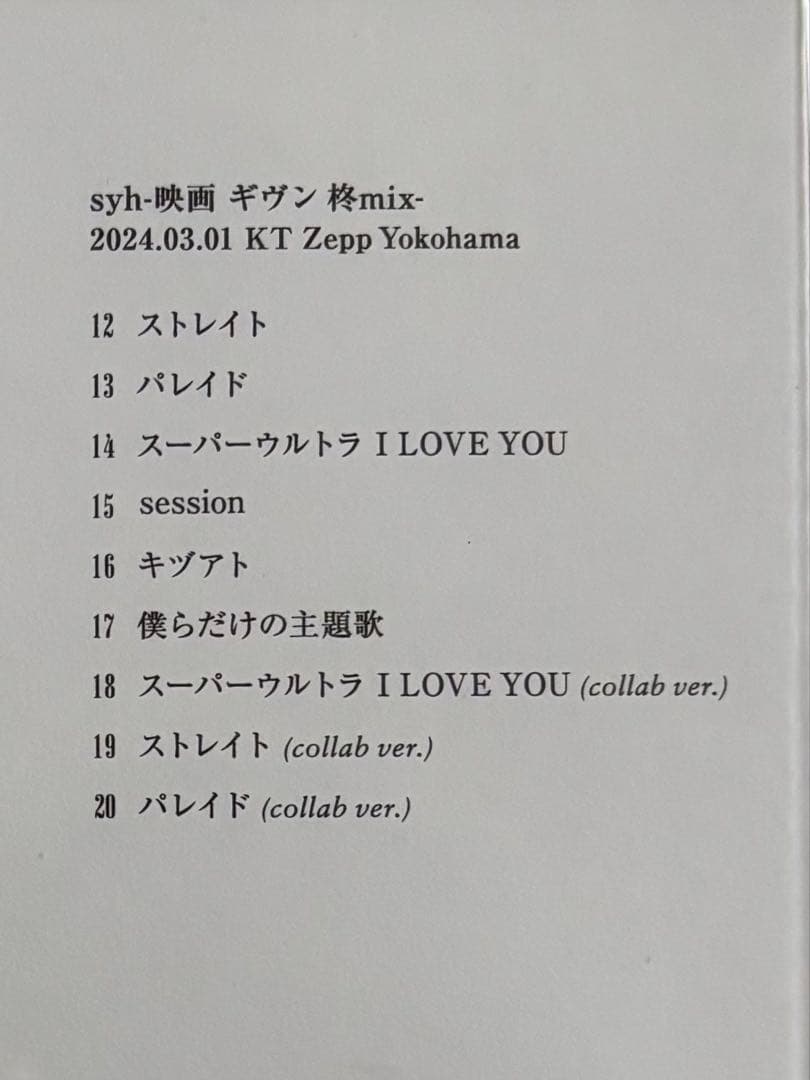 syh-映画 ギヴン 柊mix-
2024.03.01 KT Zepp Yokohama
12 ストレイト
13 パレイド
14 スーパーウルトラ I LOVE YOU
15 session
16 キヅアト
17 僕らだけの主題歌
18 スーパーウルトラ I LOVE YOU (collab ver.)
19 ストレイト (collab ver.)
20 パレイド (collab ver.)